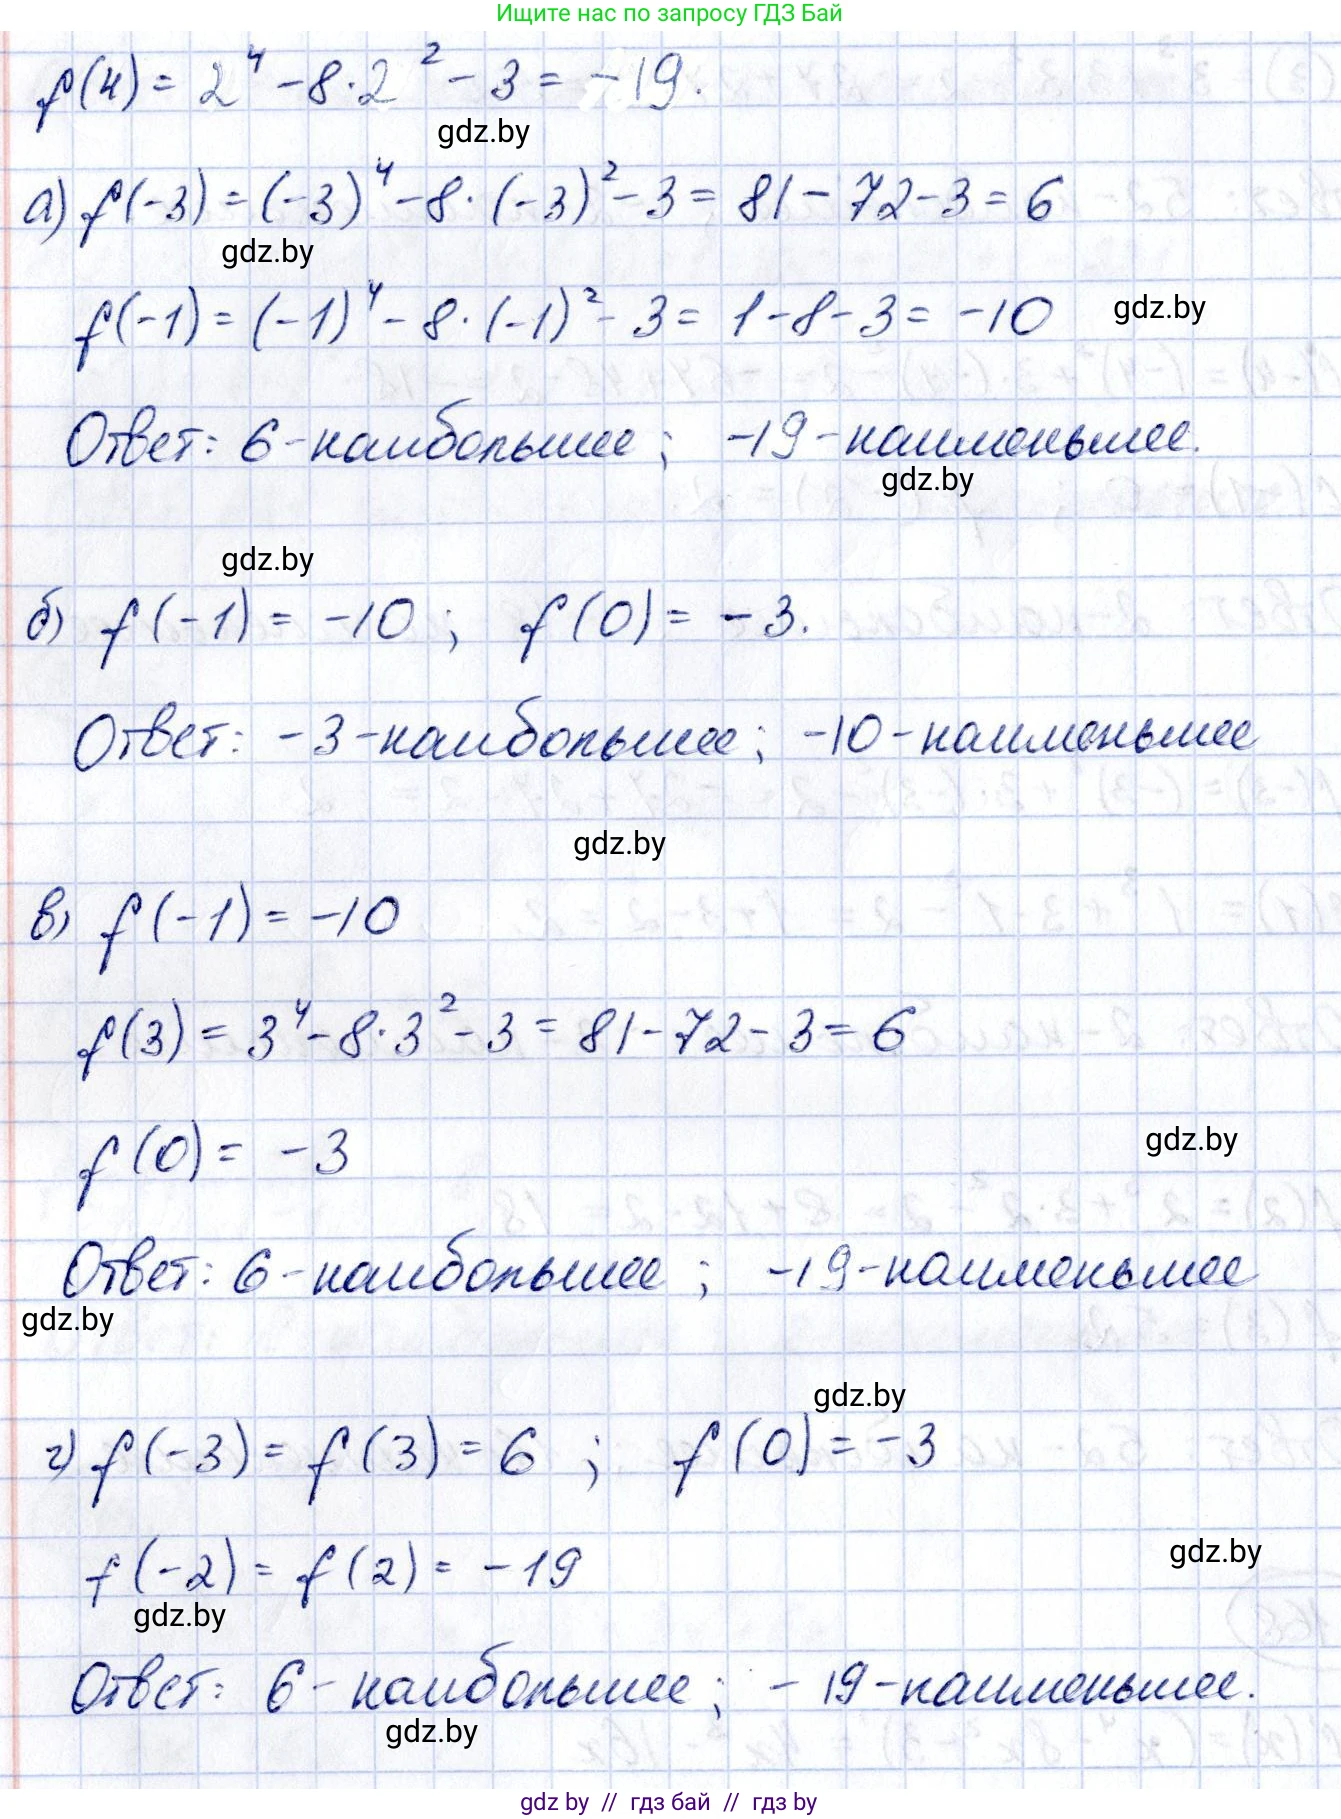 Ищите нас по запросу ГДЗ Бай
f(4) = 2⁴ - 8·2² - 3 = -19.
gdz.by
а) f(-3) = (-3)⁴ - 8·(-3)² - 3 = 81 - 72 - 3 = 6
gdz.by
f(-1) = (-1)⁴ - 8·(-1)² - 3 = 1 - 8 - 3 = -10 gdz.by
Ответ: 6 - наибольшее; -19 - наименьшее.
gdz.by
gdz.by
б) f(-1) = -10; f(0) = -3.
Ответ: -3 - наибольшее; -10 - наименьшее
gdz.by
в) f(-1) = -10
f(3) = 3⁴ - 8·3² - 3 = 81 - 72 - 3 = 6
f(0) = -3 gdz.by
Ответ: 6 - наибольшее; -19 - наименьшее
gdz.by
gdz.by
г) f(-3) = f(3) = 6; f(0) = -3
f(-2) = f(2) = -19 gdz.by
gdz.by
Ответ: 6 - наибольшее; -19 - наименьшее.
gdz.by
gdz by // гдз бай // гдз by